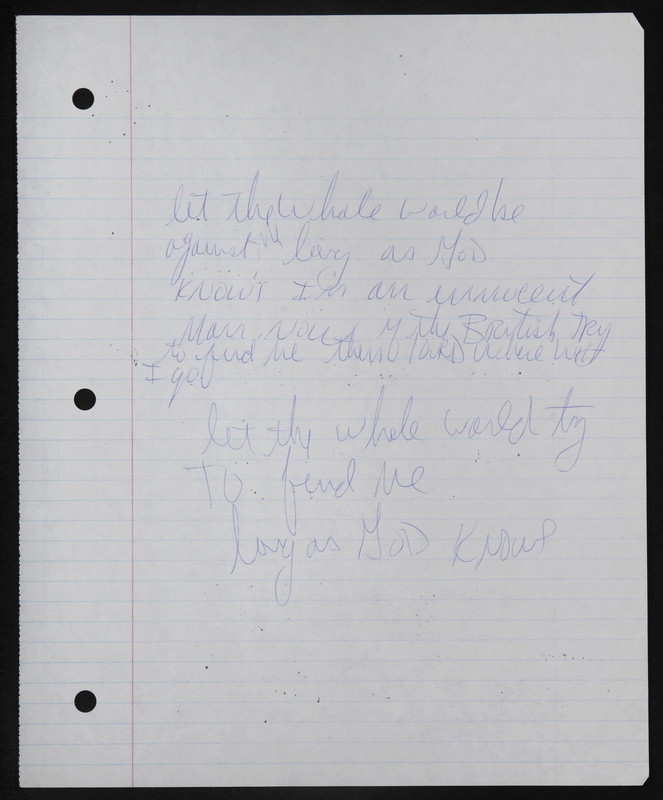 let thy whole world be
against me long as GOD
KNOWS I'm an innocent
Man now if the British try
to find me then LORD where will
I go
let thy whole world try
TO find Me
long as GOD KNOWS